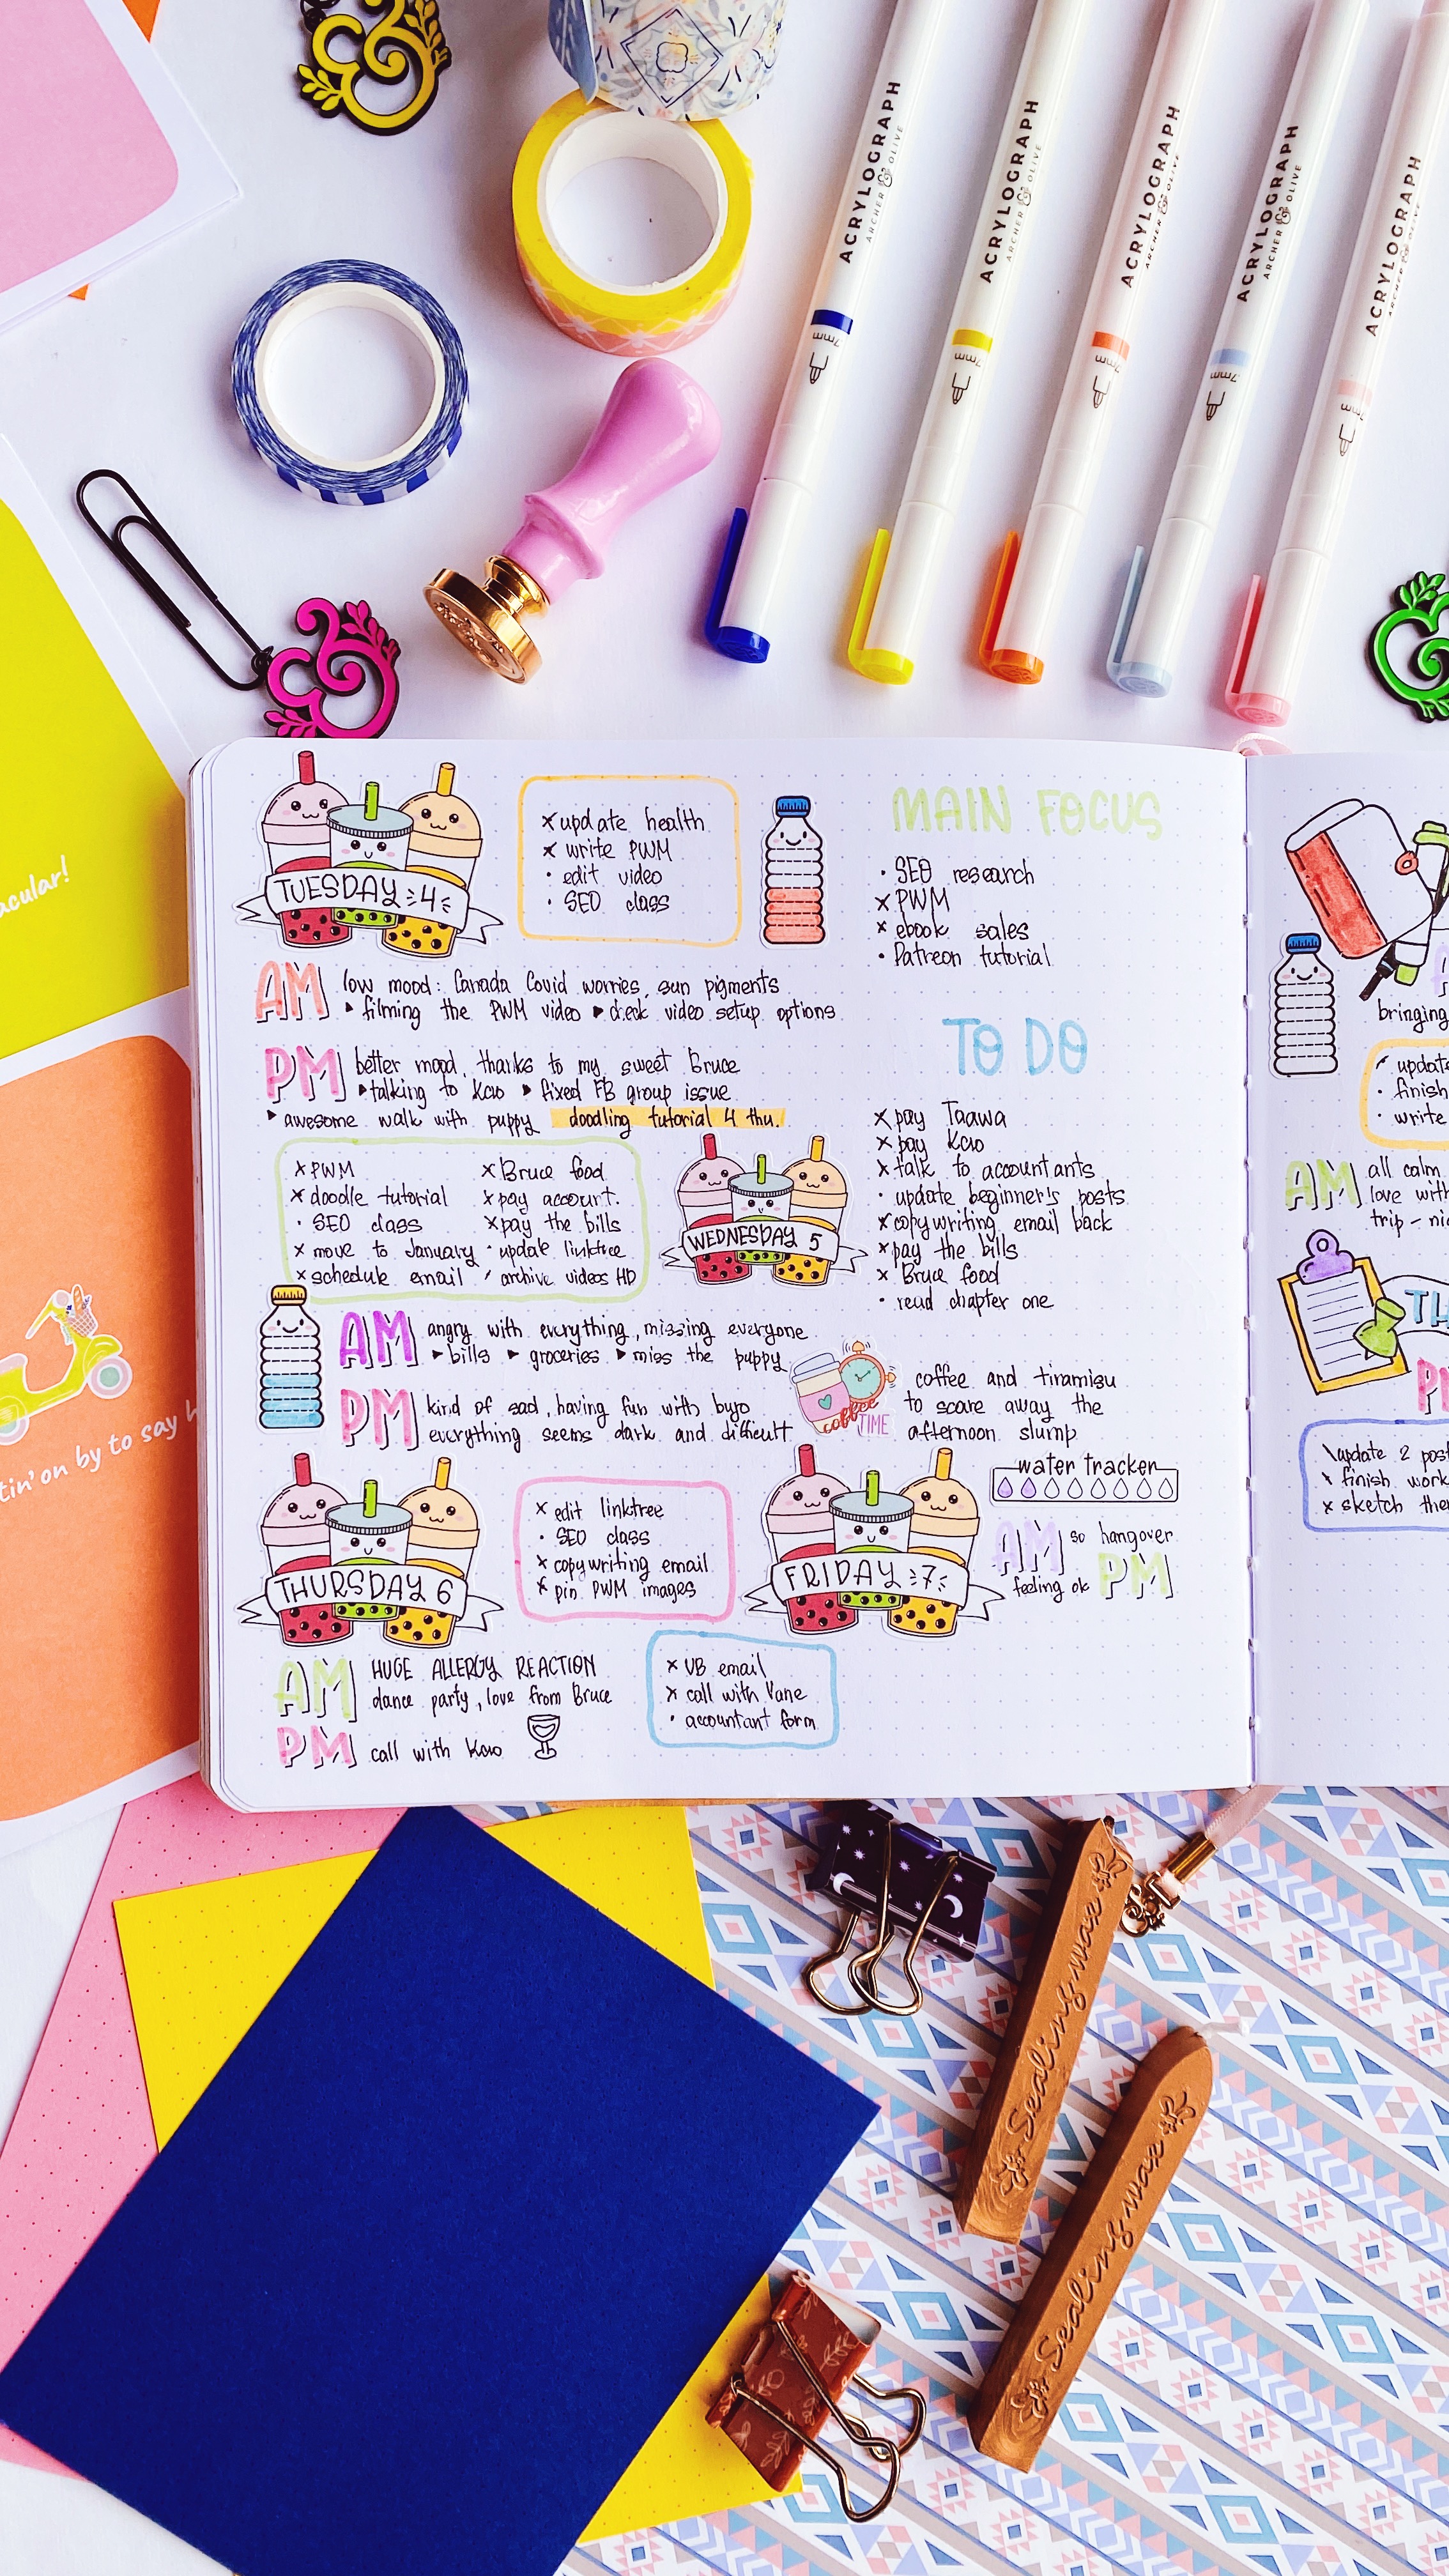 ACRYLOGRAPH
ARCHER & OLIVE
.7mm
ACRYLOGRAPH
ARCHER & OLIVE
.7mm
ACRYLOGRAPH
ARCHER & OLIVE
.7mm
ACRYLOGRAPH
ARCHER & OLIVE
.7mm
ACRYLOGRAPH
acular!
tin' on by to say h
TUESDAY 4
x update health
x write PWM
· edit video
· SEO class
AM low mood: Canada Covid worries, sun pigments
▸ filming the PWM video ▸ check video setup options
PM better mood, thanks to my sweet Bruce
▸ talking to Kao ▸ fixed FB group issue
▸ awesome walk with puppy doodling tutorial 4 thu.
x PWM
x doodle tutorial
· SEO class
x move to January
x schedule email
x Bruce food
x pay account.
x pay the bills
· update linktree
/ archive videos HD
WEDNESDAY 5
AM angry with everything, missing everyone
▸ bills ▸ groceries ▸ miss the puppy
PM kind of sad, having fun with bujo
everything seems dark and difficult
coffee TIME
THURSDAY 6
x edit linktree
· SEO class
x copywriting email
x pin PWM images
AM HUGE ALLERGY REACTION
dance party, love from Bruce
PM call with Kao
MAIN FOCUS
· SEO research
x PWM
x ebook sales
· Patreon tutorial
TO DO
x pay Taawa
x pay Kao
x talk to accountants
· update beginner's posts
x copywriting email back
x pay the bills
x Bruce food
· read chapter one
coffee and tiramisu
to scare away the
afternoon slump
water tracker
FRIDAY 7
AM so hangover
feeling ok PM
x VB email
x call with Vane
· accountant form
bringing
update
· finish
· write
AM all calm
love with
trip -
TH
\update 2 post
x finish work
x sketch the
Sealing wax
Sealing wax